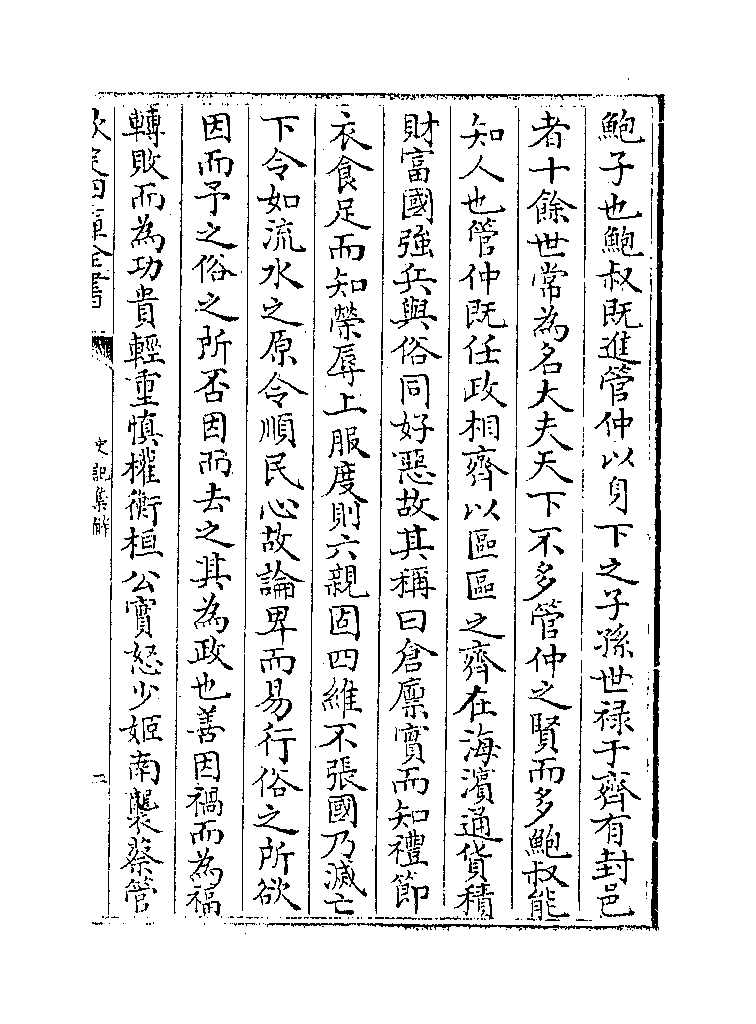 鮑子也鮑叔既進管仲以身下之子孫世禄于齊有封邑
者十餘世常為名大夫天下不多管仲之賢而多鮑叔能
知人也管仲既任政相齊以區區之齊在海濱通貨積
財富國強兵與俗同好惡故其稱曰倉廪實而知禮節
衣食足而知榮辱上服度則六親固四維不張國乃滅亡
下令如流水之原令順民心故論卑而易行俗之所欲
因而予之俗之所否因而去之其為政也善因禍而為福
轉敗而為功貴輕重慎權衡桓公實怒少姬南襲蔡管
欽定四庫全書
史記集解
二